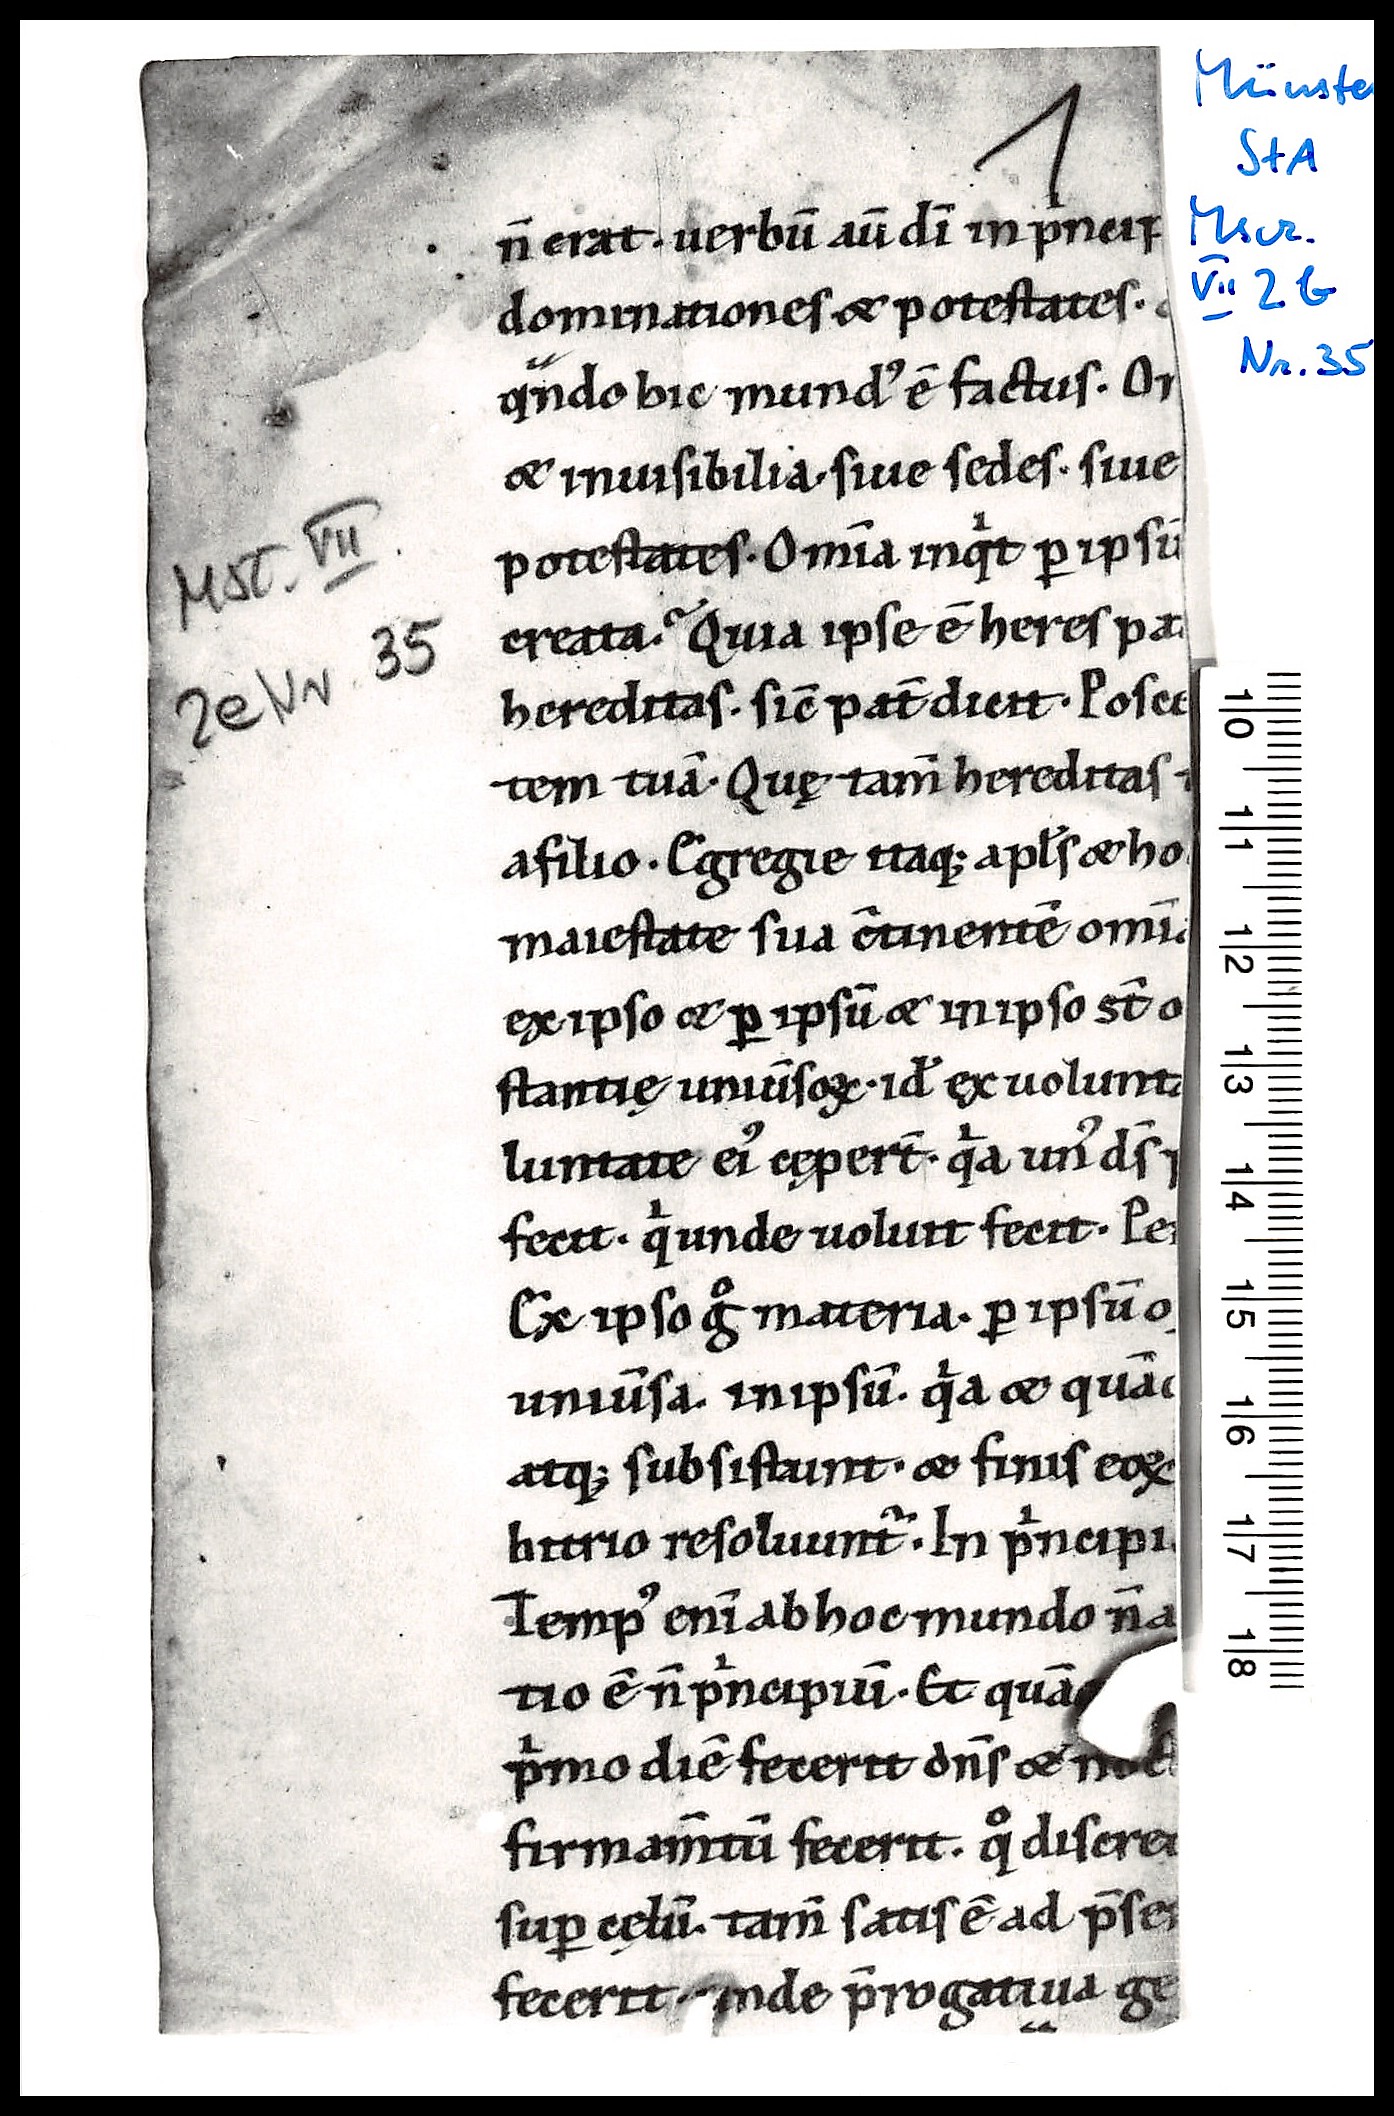 1
Münster
StA
Mscr.
VII 2 b
Nr. 35
Mst. VII
35
n̄ erat · uerbū aū dī in pͥncip
dominationeſ & poteſtateſ ·
qͣndo hic mundꝰ ē factus · Om
& inuiſibilia · ſiue ſedeſ · ſiue
poteſtateſ · Om̄ia inqͥt ꝑ ipſū
creata · Quia ipſe ē hereſ pa
hereditaſ · ſic̄ pat̄ dicit · Poſce
tem tuā · Quę tam̄ hereditaſ
afilio · Egregie itaq; apl̄ſ & ho
maieſtate ſua c̄tinentē om̄ia
ex ipſo & ꝑ ipſū & in ipſo ſt̄ o
ſtantię uniūſoꝝ · id̄ ex uolunta
luntate eiꝰ cęper̄t · qͥa unꝰ dſ̄
fecit · qͥ unde uoluit fecit · Pe
Ex ipſo gͦ materia · ꝑ ipſū o
uniūſa · in ipſū · qͥa & quā
atq; ſubſiſtunt · & finiſ eoꝝ
bitrio reſoluunt᷑ · In pͥncipi
Tempꝰ enī ab hoc mundo n̄ a
tio ē n̄ pͥncipiū · Et quā
pͥmo diē fecerit dn̄ſ & noct
firmam̄tū fecerit · qͦ diſcre
ſuꝑ cęlū · tam̄ ſatiſ ē ad p̄ſe
fecerit · unde p̄rogatiua ge
10
11
12
13
14
15
16
17
18